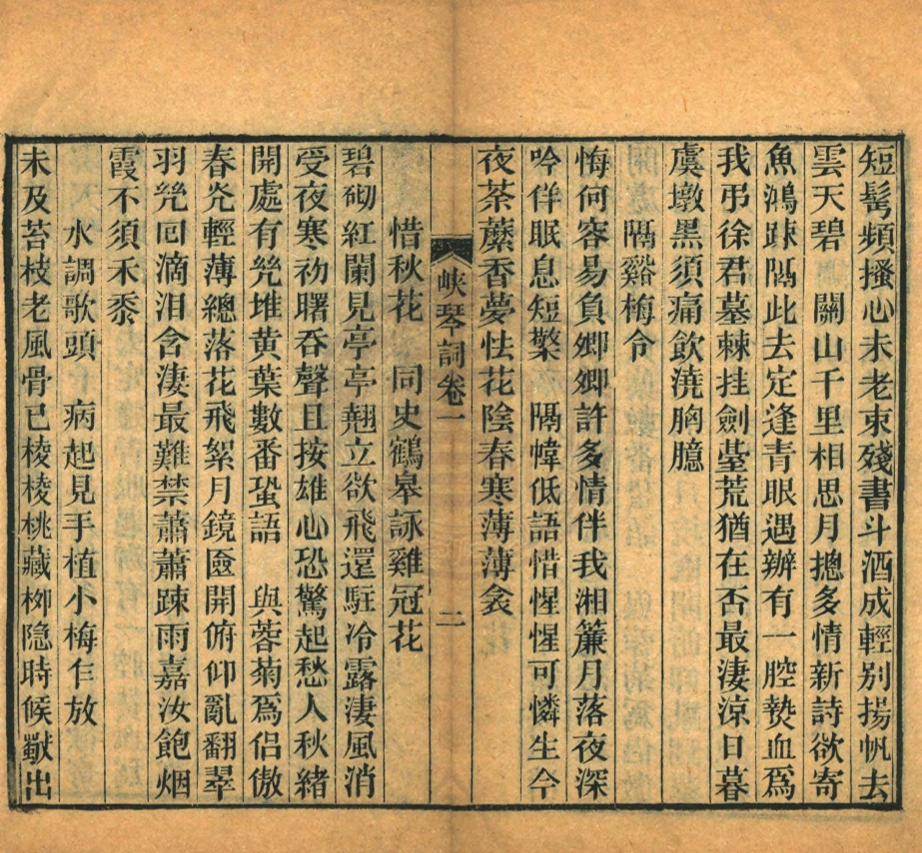 短髩頻搔心未老束殘書斗酒成輕别揚帆去
雲天碧　關山千里相思月摠多情新詩欲寄
魚鴻踈隔此去定逢青眼遇辦有一腔熱血爲
我弔徐君墓棘挂劍䑓荒猶在否最淒涼日暮
虞墩黑須痛飲澆胸臆
隔谿梅令
悔何容易負卿卿許多情伴我湘簾月落夜深
吟伴眠息短檠　隔幃低語惜惺惺可憐生今
夜荼蘼香夢怯花陰春寒薄薄衾
峽琴詞卷一
二
惜秋花　同史鶴皋詠雞冠花
碧砌紅闌見亭亭翹立欲飛還駐冷露淒風消
受夜寒初曙吞聲且按雄心恐驚起愁人秋緒
開處有兠堆黄葉數番蛩語　與蓉菊爲侣傲
春光輕薄總落花飛絮月鏡匳開俯仰亂翻翠
羽兠囘滴泪含淒最難禁蕭蕭踈雨嘉汝飽烟
霞不須禾黍
水調歌頭　病起見手植小梅乍放
未及苔枝老風骨已棱棱桃藏栁隐時候獣出